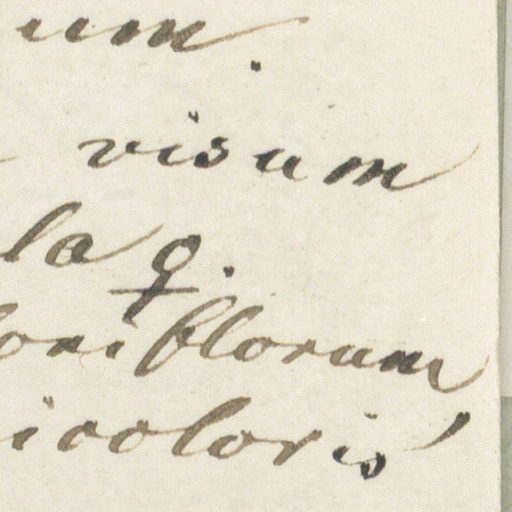 um.
visum
la ♀.
oriflorum
icoloris